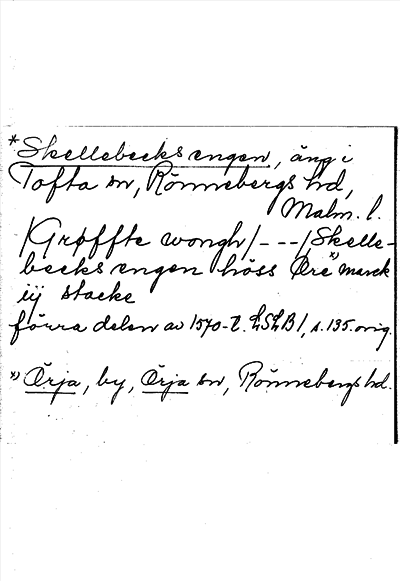 *Skellebecks engen, äng i
Tofta sn, Rönnebergs hd,
Malm. l.
/Grøffte wongh/ - - - /Skelle-
becks engen höss Øre x) marck
iij stacke
förra delen av 1570-t. LSLB 1, s. 135. orig.
x) Örja, by, Örja sn, Rönnebergs hd.